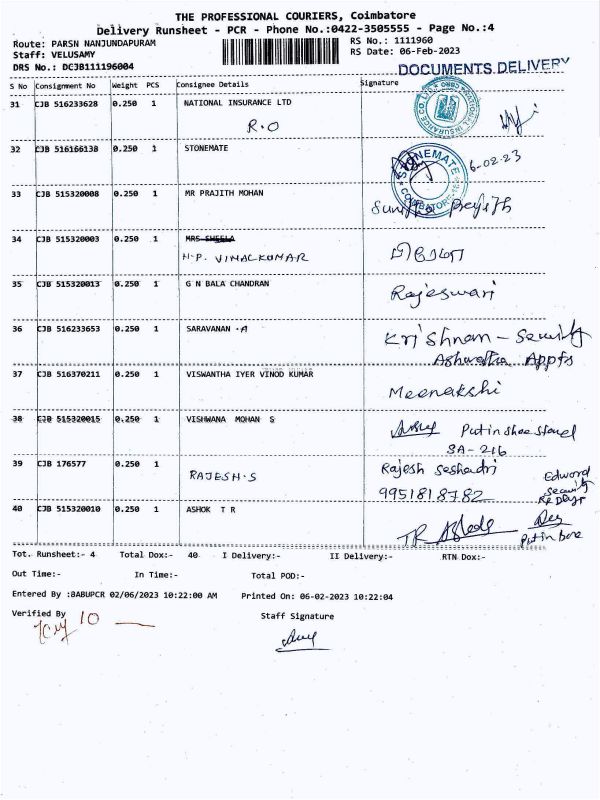 THE PROFESSIONAL COURIERS, Coimbatore
Delivery Runsheet - PCR - Phone No.:0422-3505555 - Page No.:4
Route: PARSN NANJUNDAPURAM RS No.: 1111960
Staff: VELUSAMY RS Date: 06-Feb-2023
DRS No.: DCJB111196004 DOCUMENTS DELIVERY
S No Consignment No Weight PCS Consignee Details Signature
31 CJB 516233628 0.250 1 NATIONAL INSURANCE LTD
R.O
32 CJB 516166138 0.250 1 STONEMATE STONEMATE COIMBATORE 6-02-23
33 CJB 515320008 0.250 1 MR PRAJITH MOHAN
34 CJB 515320003 0.250 1 MRS SHEELA
N.P. VIMALKUMAR
35 CJB 515320013 0.250 1 G N BALA CHANDRAN Rajeswari
36 CJB 516233653 0.250 1 SARAVANAN .A Krishnam - Security
Ashwatha Appts
37 CJB 516370211 0.250 1 VISWANTHA IYER VINOD KUMAR Meenakshi
38 CJB 515320015 0.250 1 VISHWANA MOHAN S Put in shoe stand
3A-216
39 CJB 176577 0.250 1 RAJESH.S Rajesh Seshadri
9951818782
Edword
Security
40 CJB 515320010 0.250 1 ASHOK T R TR Ashok
Put in box
Tot. Runsheet:- 4 Total Dox:- 40 I Delivery:- II Delivery:- RTN Dox:-
Out Time:- In Time:- Total POD:-
Entered By :BABUPCR 02/06/2023 10:22:00 AM Printed On: 06-02-2023 10:22:04
Verified By Staff Signature
10